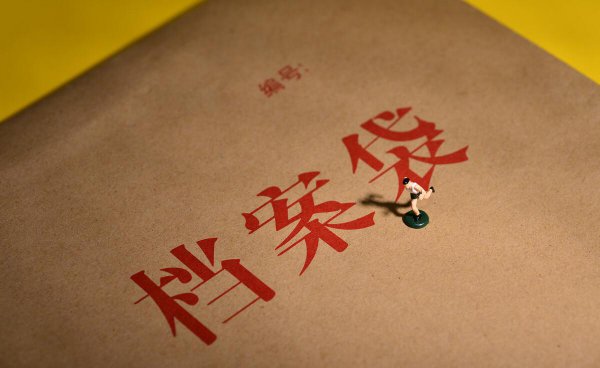 编号:
档案袋